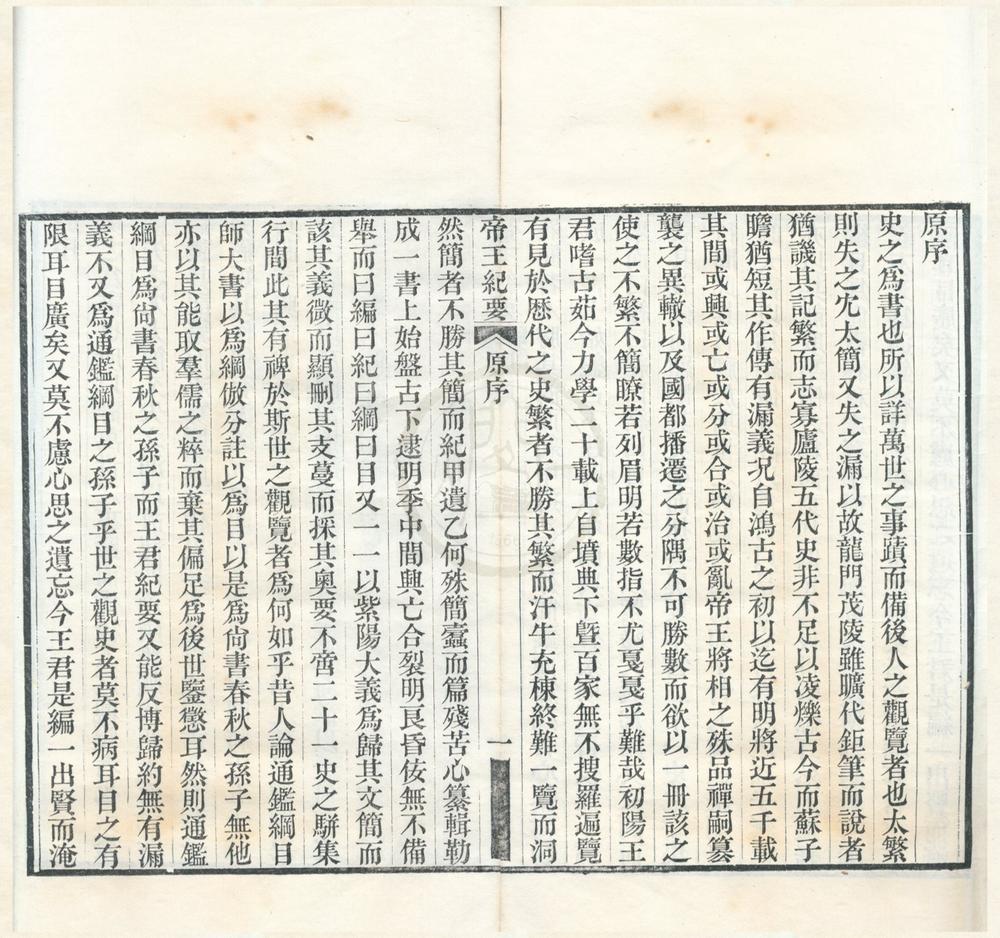 原序
史之爲書也所以詳萬世之事蹟而備後人之觀覽者也太繁
則失之宂太簡又失之漏以故龍門茂陵雖曠代鉅筆而說者
猶譏其記繁而志寡廬陵五代史非不足以凌爍古今而蘇子
瞻猶短其作傳有漏義况自鴻古之初以迄有明將近五千載
其間或興或亡或分或合或治或亂帝王將相之殊品禪嗣簒
襲之異轍以及國都播遷之分隅不可勝數而欲以一冊該之
使之不繁不簡瞭若列眉明若數指不尤戞戞乎難哉初陽王
君嗜古茹今力學二十載上自墳典下曁百家無不搜羅遍覽
有見於歷代之史繁者不勝其繁而汗牛充棟終難一覽而洞
帝王紀要 原序 一
然簡者不勝其簡而紀甲遺乙何殊簡蠹而篇殘苦心纂輯勒
成一書上始盤古下逮明季中間興亡合裂明良昏侫無不備
舉而曰編曰紀曰綱曰目又一一以紫陽大義爲歸其文簡而
該其義微而顯刪其支蔓而採其奧要不啻二十一史之駢集
行間此其有裨於斯世之觀覽者爲何如乎昔人論通鑑綱目
師大書以爲綱倣分註以爲目以是爲尙書春秋之孫子無他
亦以其能取羣儒之粹而棄其偏足爲後世鑒懲耳然則通鑑
綱目爲尙書春秋之孫子而王君紀要又能反博歸約無有漏
義不又爲通鑑綱目之孫子乎世之觀史者莫不病耳目之有
限耳目廣矣又莫不慮心思之遺忘今王君是編一出賢而淹